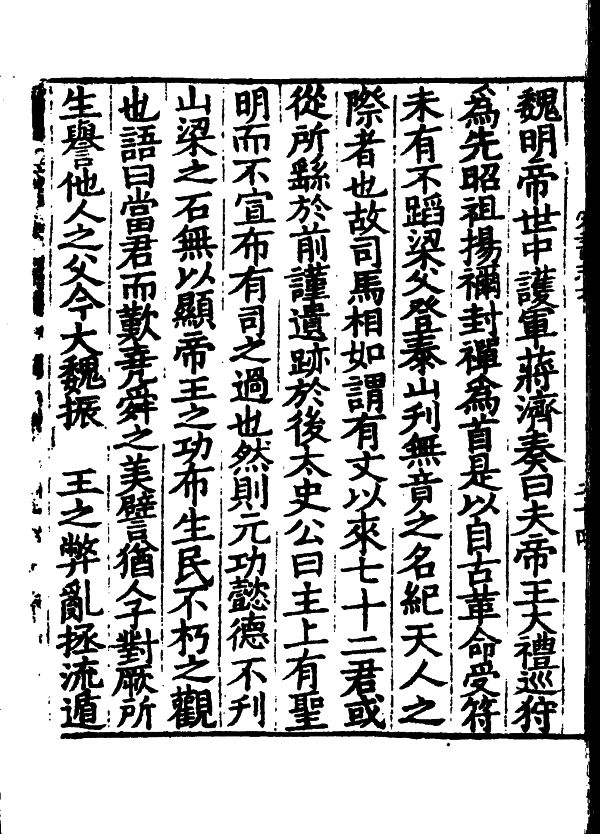 魏明帝世中護軍蔣濟奏曰夫帝王大禮巡狩
為先昭祖揚禰封禪為首是以自古革命受符
未有不蹈梁父登泰山刋無音之名紀天人之
際者也故司馬相如謂有文以來七十二君或
從所繇於前謹遺跡於後太史公曰主上有聖
明而不宣布有司之過也然則元功懿德不刋
山梁之石無以顯帝王之功布生民不朽之觀
也語曰當君而歎堯舜之美譬猶人子對厥所
生譽他人之父今大魏振　王之弊亂拯流遁